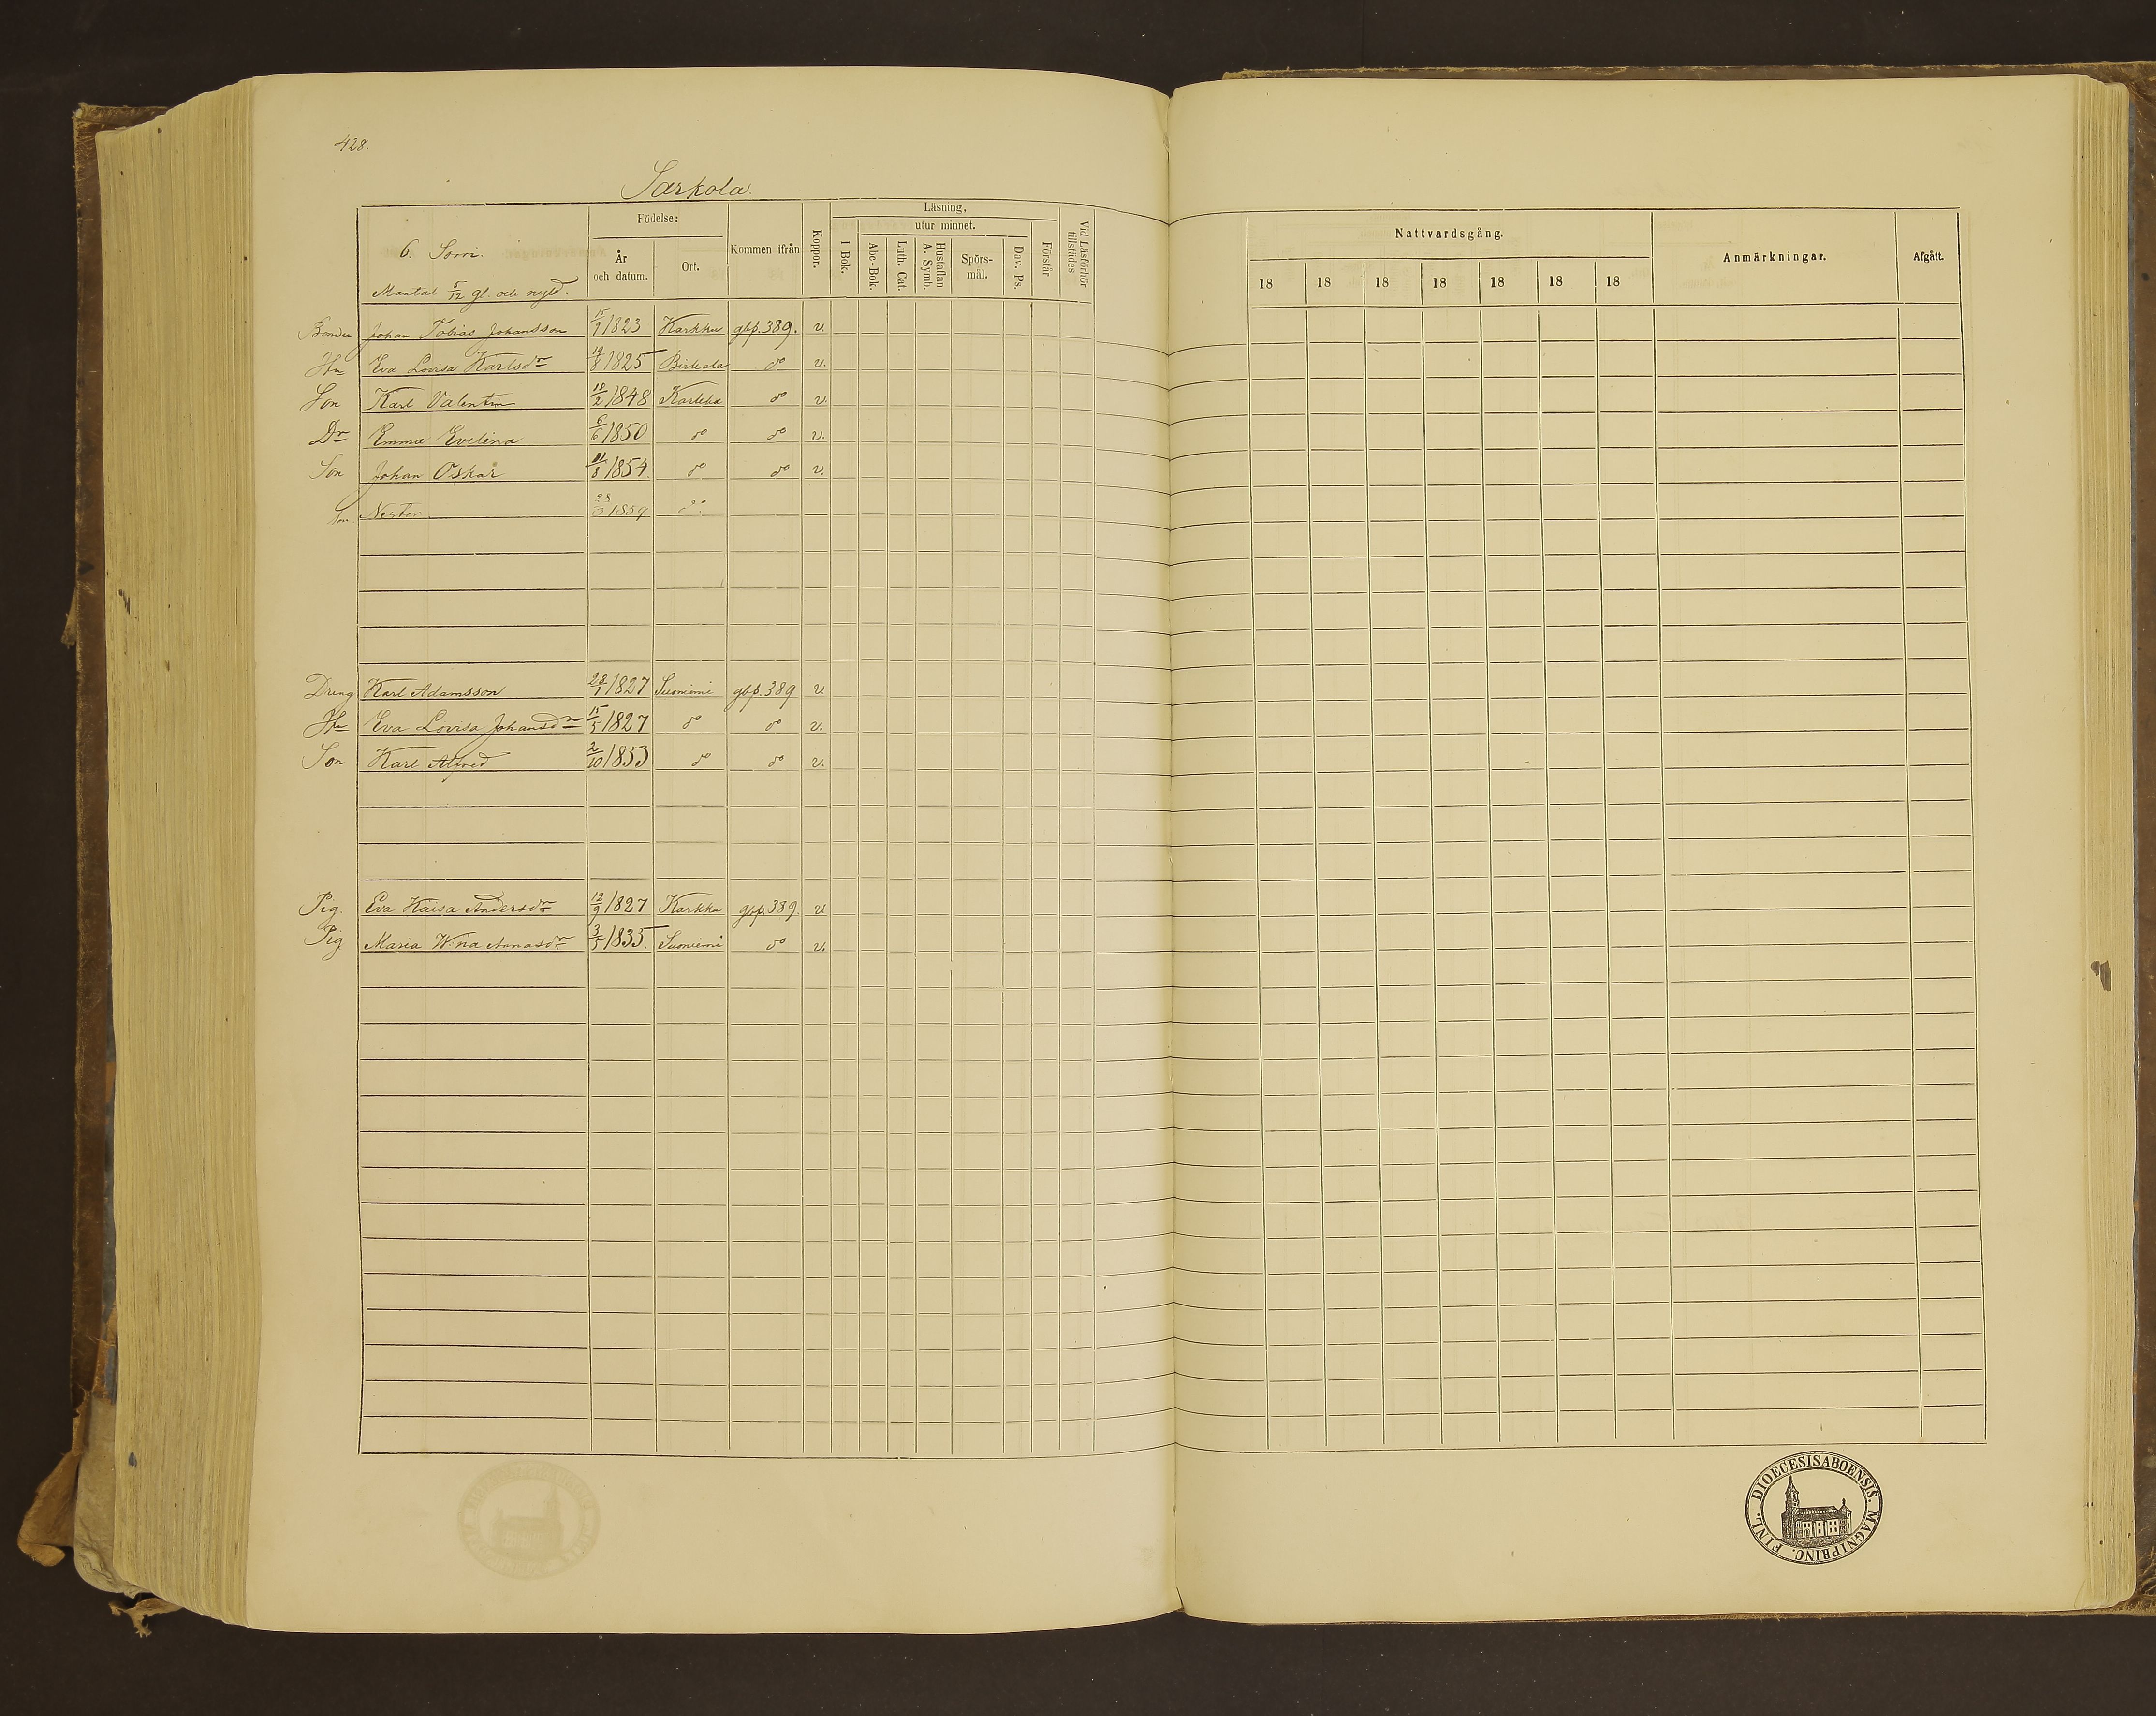 428.
Sarkola.
6. Sorri.
Mantal 5/12 gl. och nytt.
Födelse:
År och datum.
Ort.
Kommen ifrån
Koppor.
Läsning,
utur minnet.
I Bok.
Abc-Bok.
Luth. Cat.
Hustaflan A. Symb.
Spörs-mål.
Dav. Ps.
Förstår
Vid Läsförhör tillstädes
Nattvardsgång.
18 18 18 18 18 18 18
Anmärkningar.
Afgått.
Bonden Johan Tobias Johansson 15/9 1823 Karkku gbp. 389. v.
Hu Eva Lovisa Karlsdr 14/8 1825 Birkala do v.
Son Karl Valentin 18/2 1848 Karkku do v.
Dr Emma Evelina 6/6 1850 do do v.
Son Johan Oskar 11/8 1854. do do v.
Son Nestor 1859 do
Dreng Karl Adamsson 28/1 1827 Suoniemi gbp. 389 v.
Hu Eva Lovisa Johansdr 15/5 1827 do do v.
Son Karl Alfred 2/10 1853 do do v.
Pig. Eva Kaisa Andersdr 12/9 1827 Karkku gbp. 389. v
Pig Maria W:na Annasdr 3/5 1835. Suoniemi do v.
DIOECESIS ABOENSIS. MAGNI PRINC. FINL.